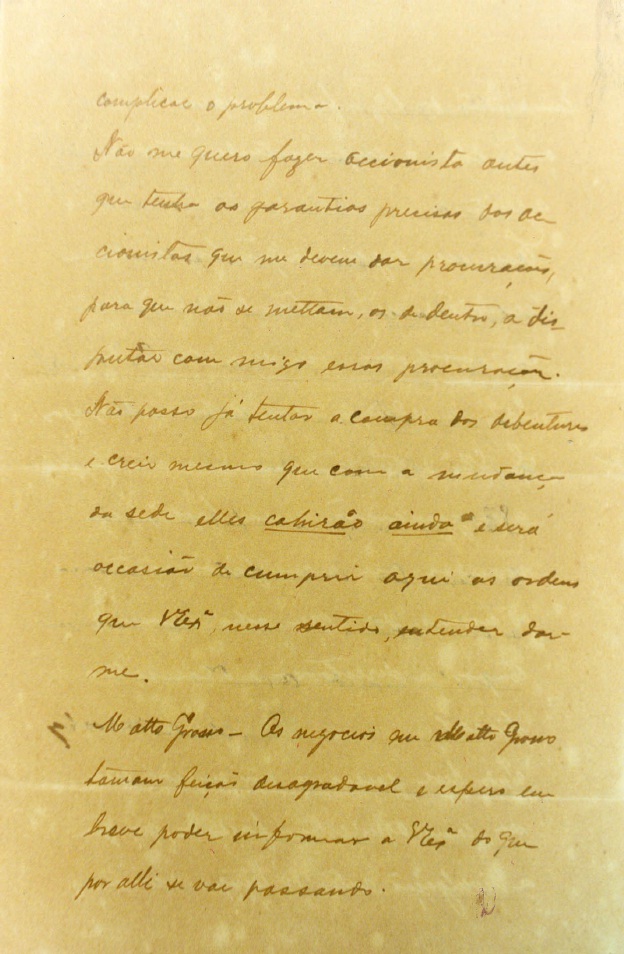 complicar o problema.
Não me quero fazer accionista antes
que tenha as garantias precisas dos ac
cionistas que me devem dar procurações,
para que não se mettam, os de dentro, a dis-
putar com migo essas procurações.
Não posso já tentar a compra dos debentures
e creio mesmo que com a mudança
da sede elles cahirão ainda e será
occasião de cumprir aqui as ordens
que VExª, nesse sentido, entender dar-
me.
Matto Grosso - Os negocios em Matto Grosso
tomam feição desagradavel e espero em
breve poder informar a VExª do que
por alli se vae passando.